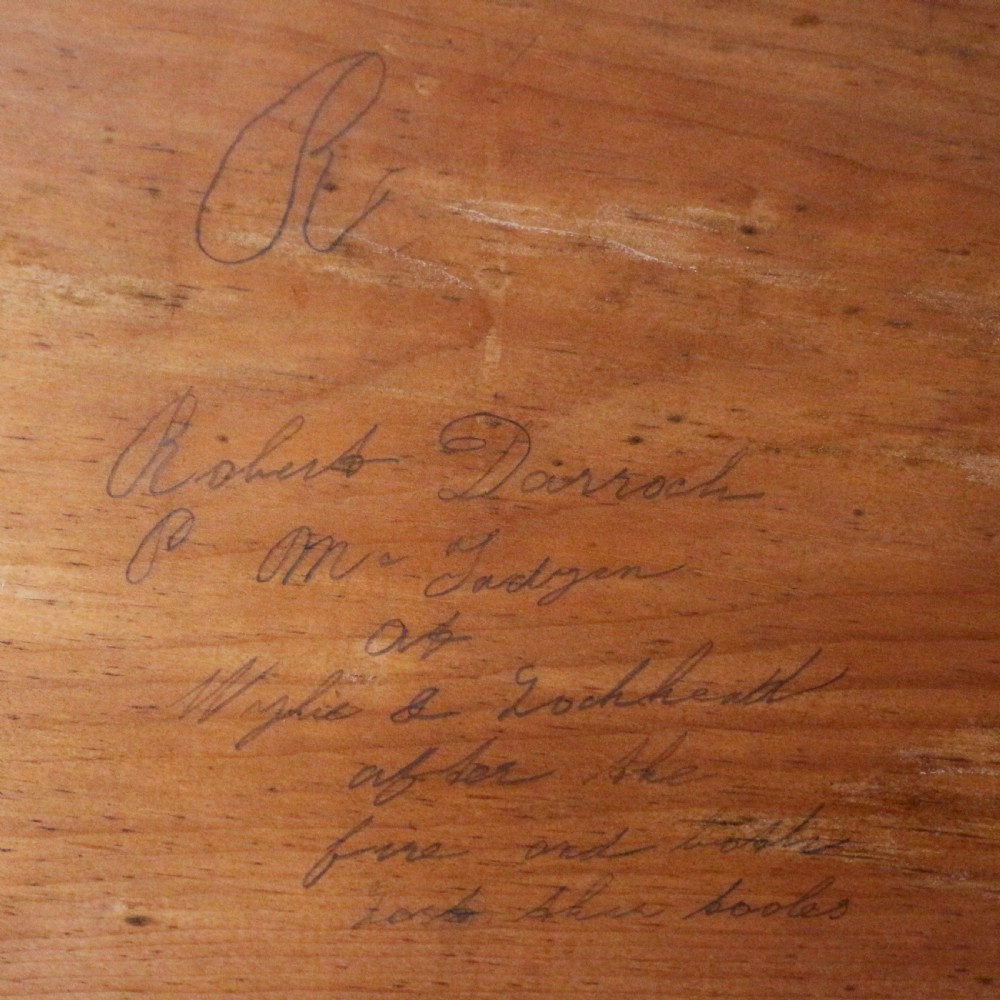 R
Robert Darroch
P Mc Fadyen
at
Wylie & Lochhead
after the
fire and both
Lost their tooles